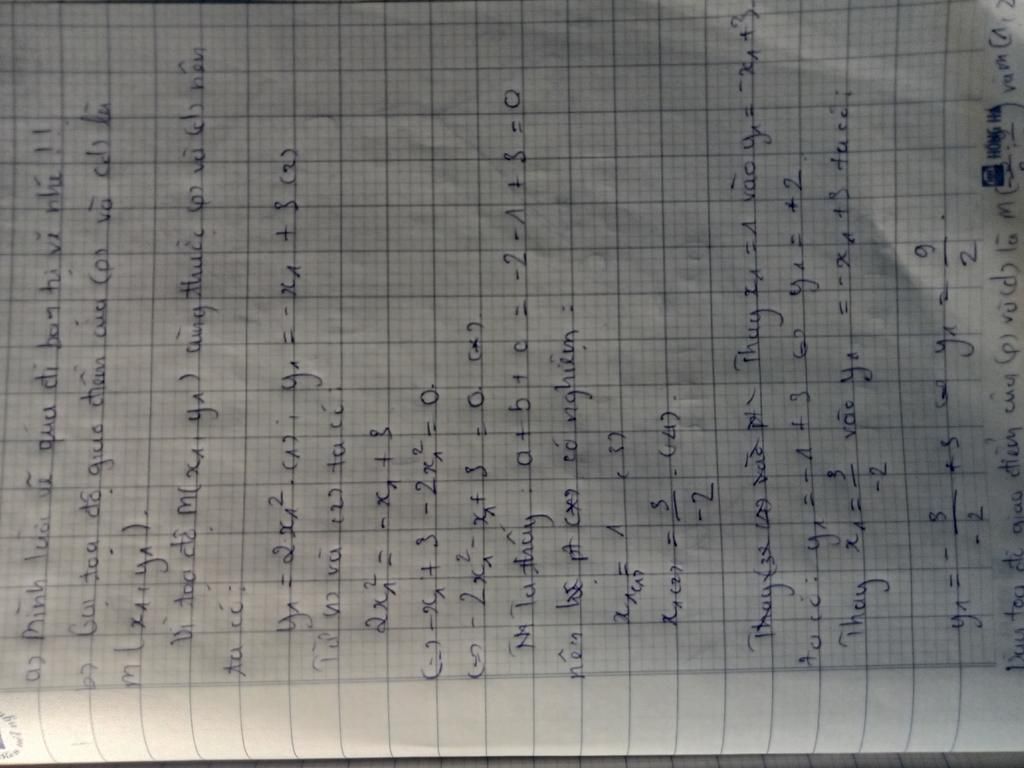 a) Mình lười vẽ quá đi bạn tự vẽ nhé !!
b) Gọi toạ độ giao điểm của (p) và (d) là
M(x₁; y₁).
Vì toạ độ M(x₁; y₁) cùng thuộc (p) và (d) nên
ta có:
y₁ = 2x₁² (1); y₁ = -x₁ + 3 (2)
Từ (1) và (2) ta có:
2x₁² = -x₁ + 3
(=) -x₁ + 3 - 2x₁² = 0.
(=) -2x₁² - x₁ + 3 = 0 (*)
Ta thấy: a + b + c = -2 - 1 + 3 = 0
nên pt (*) có nghiệm:
x₁₍₁₎ = 1 (3)
x₁₍₂₎ = 3/-2 (4).
Thay x₁ = 1 vào y₁ = -x₁ + 3
ta có: y₁ = -1 + 3 (=) y₁ = +2.
Thay x₁ = 3/-2 vào y₁ = -x₁ + 3 ta có:
y₁ = - 3/-2 + 3 (=) y₁ = 9/2.
HỒNG HÀ
toạ độ giao điểm của (p) và (d) là M